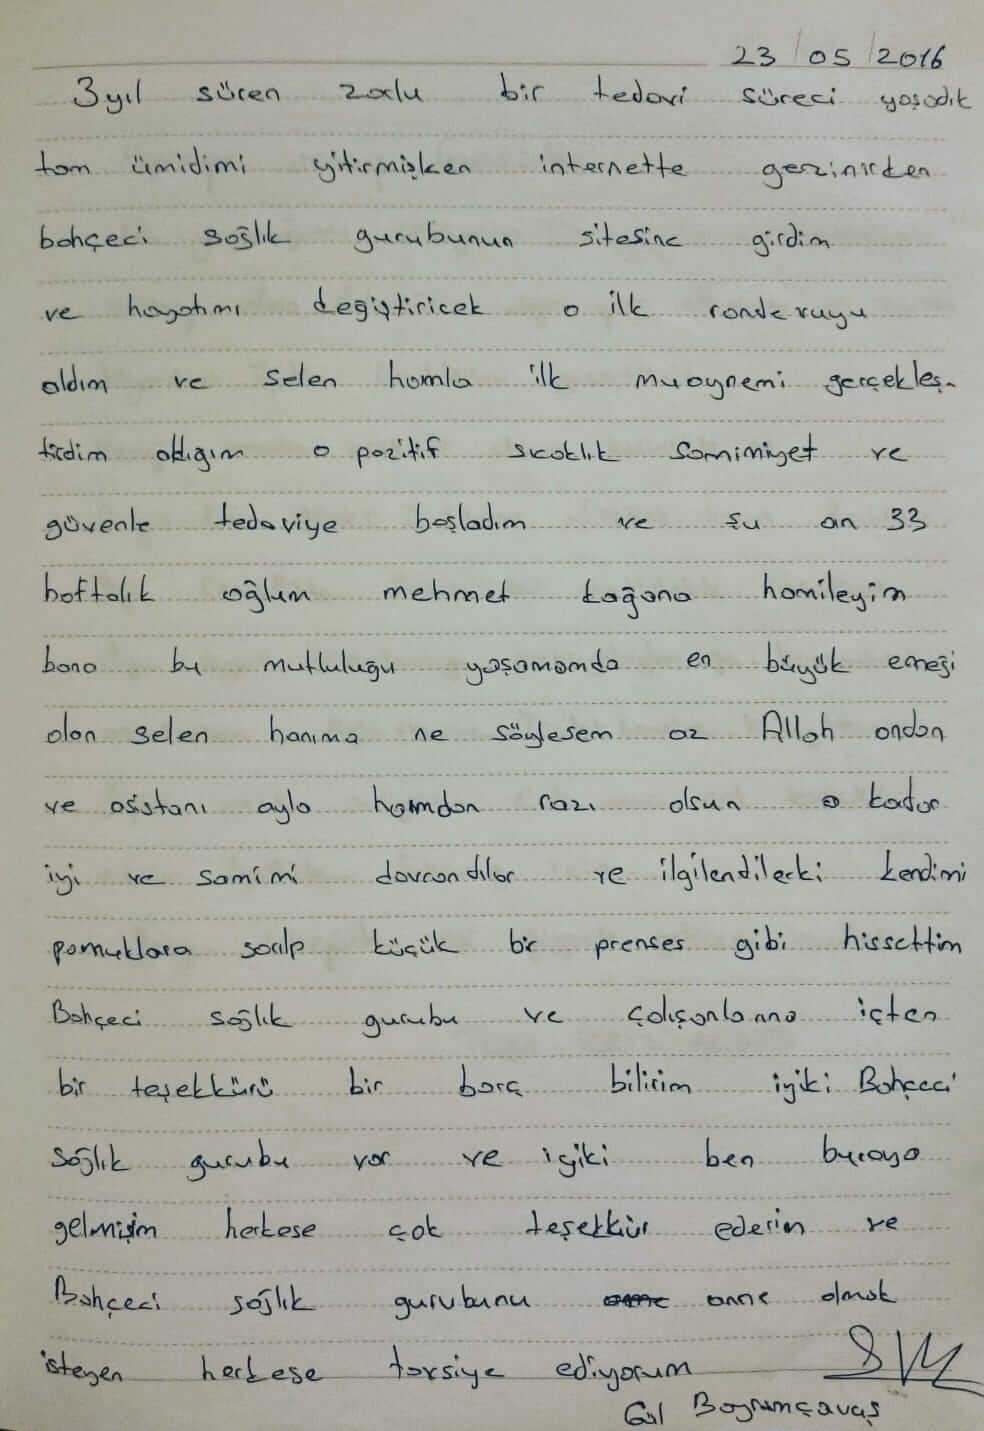 23/05/2016
3 yıl süren zorlu bir tedavi süreci yaşadık
tam ümidimi yitirmişken internette gezinirken
bahçeci sağlık gurubunun sitesine girdim
ve hayatımı değiştiricek o ilk randevuyu
aldım ve selen hamla ilk muaynemi gerçekleş-
tirdim aldığım o pozitif sıcaklık samimiyet ve
güvenle tedaviye başladım ve şu an 33
haftalık oğlum mehmet kağana hamileyim
bana bu mutluluğu yaşamamda en büyük emeği
olan selen hanıma ne söylesem az Allah ondan
ve asistanı ayla hamdan razı olsun o kadar
iyi ve samimi davrandılar ve ilgilendilerki kendimi
pamuklara sarılp küçük bir prenses gibi hissettim
Bahçeci sağlık gurubu ve çalışanlarına içten
bir teşekkürü bir borç bilirim iyiki Bahçeci
sağlık gurubu var ve iyiki ben buraya
gelmişim herkese çok teşekkür ederim ve
Bahçeci sağlık gurubunu anne olmak
isteyen herkese tavsiye ediyorum
Gül Bayramçavaş